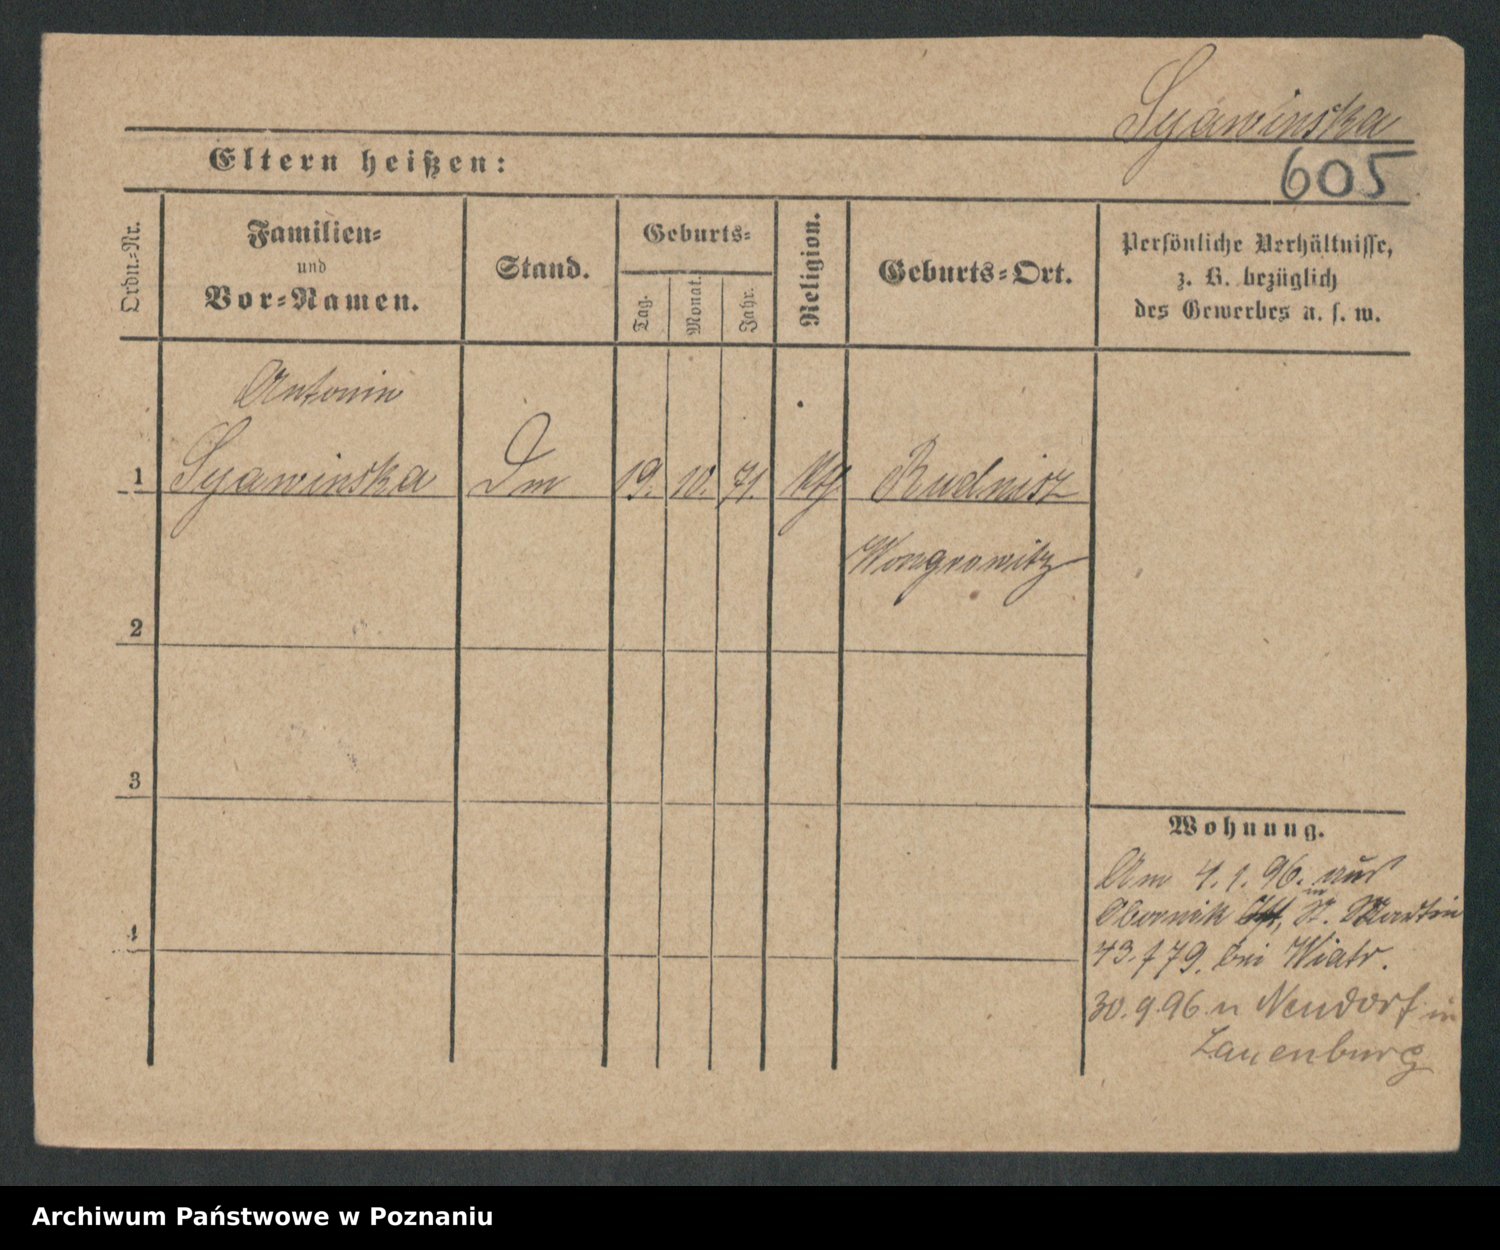 Syawinska
Eltern heißen:
605
Ordn.-Nr.
Familien-
und
Vor-Namen.
Stand.
Geburts-
Tag.
Monat.
Jahr.
Religion.
Geburts-Ort.
Persönliche Verhältnisse,
z. B. bezüglich
des Gewerbes u. s. w.
Antonin
1 Syawinska Dm 19. 10. 71. Kth Rudnisz
Wongrowitz
2
3
4
Wohnung.
Am 4. 1. 96. aus
Obornik in St. Martin
43. f 79. bei Wiatr.
30. 9. 96. n Neudorf in
Lauenburg
Archiwum Państwowe w Poznaniu